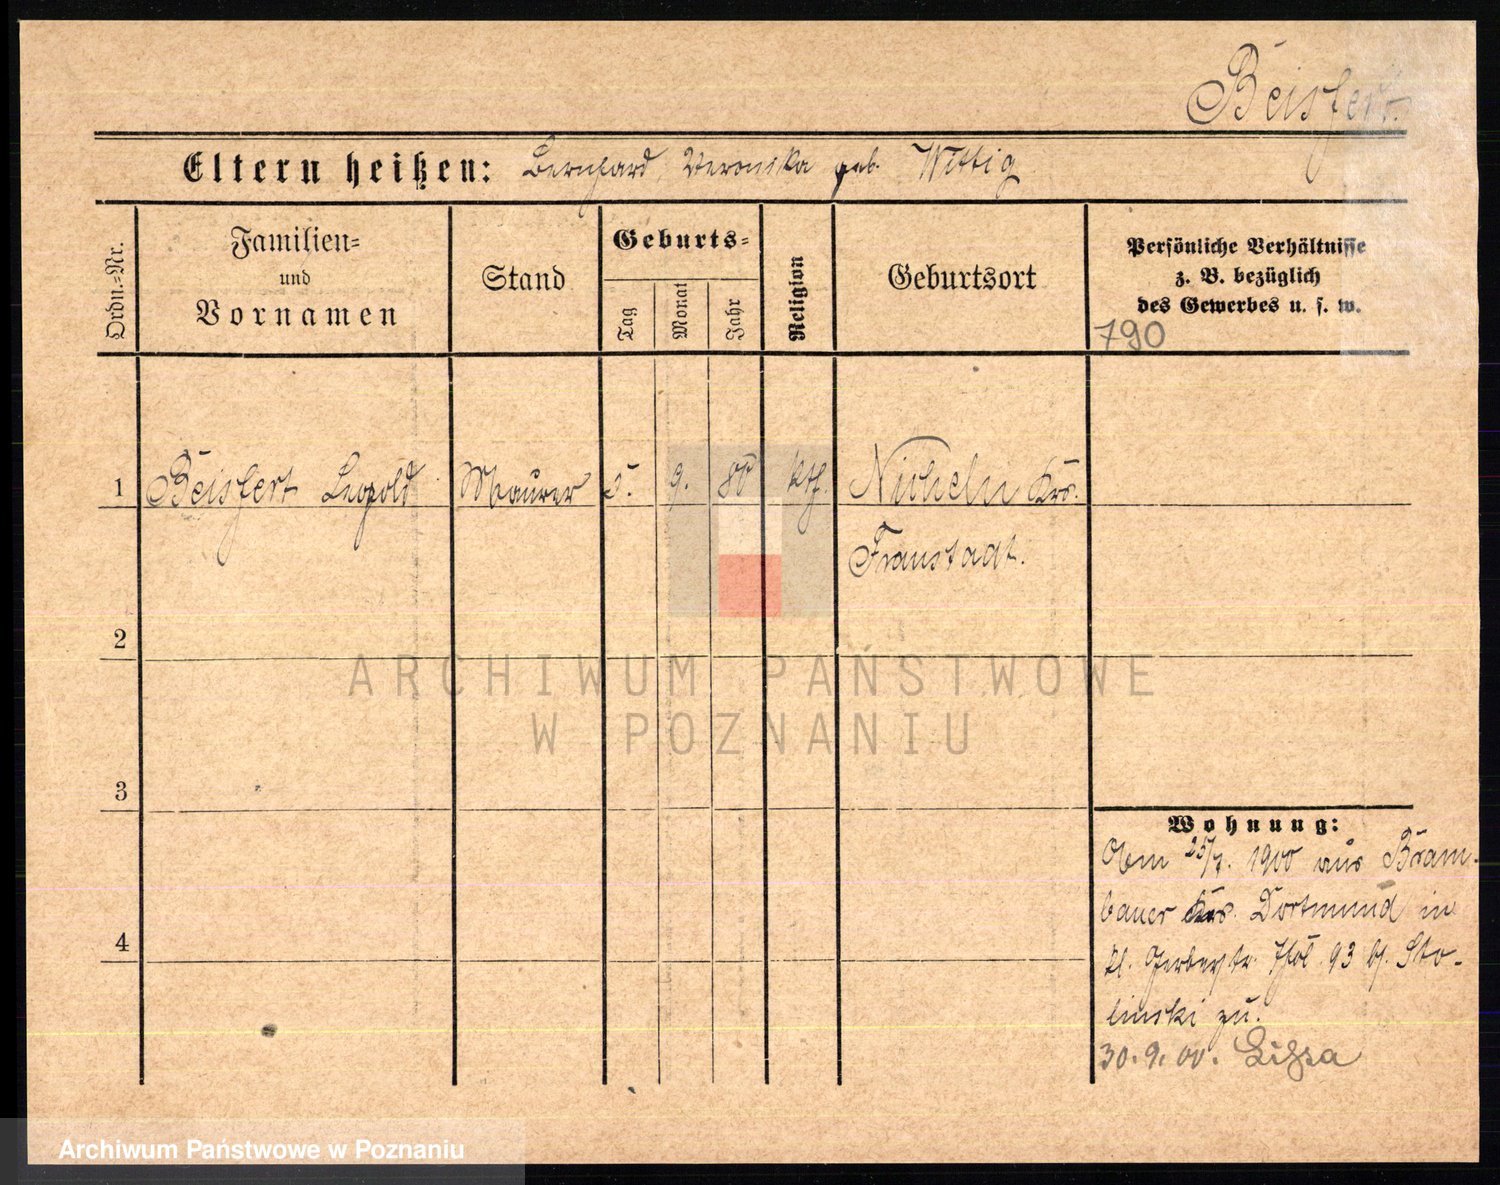 Beisfert.
Eltern heißen: Bernhard, Veronika geb. Wittig
Ordn.-Nr.
Familien-
und
Vornamen
Stand
Geburts-
Tag
Monat
Jahr
Religion
Geburtsort
Persönliche Verhältnisse
z. B. bezüglich
des Gewerbes u. s. w.
790
1 Beisfert Leopold Maurer 5. 9. 80 kth. Nicheln Krs.
Fraustadt.
2
ARCHIWUM PAŃSTWOWE
W POZNANIU
3
Wohnung:
25/7. 1900 aus Bram-
bauer Krs. Dortmund in
kl. Gerberstr. 93 b. Sto-
linski zu.
4
30. 9. 00. Lissa
Archiwum Państwowe w Poznaniu